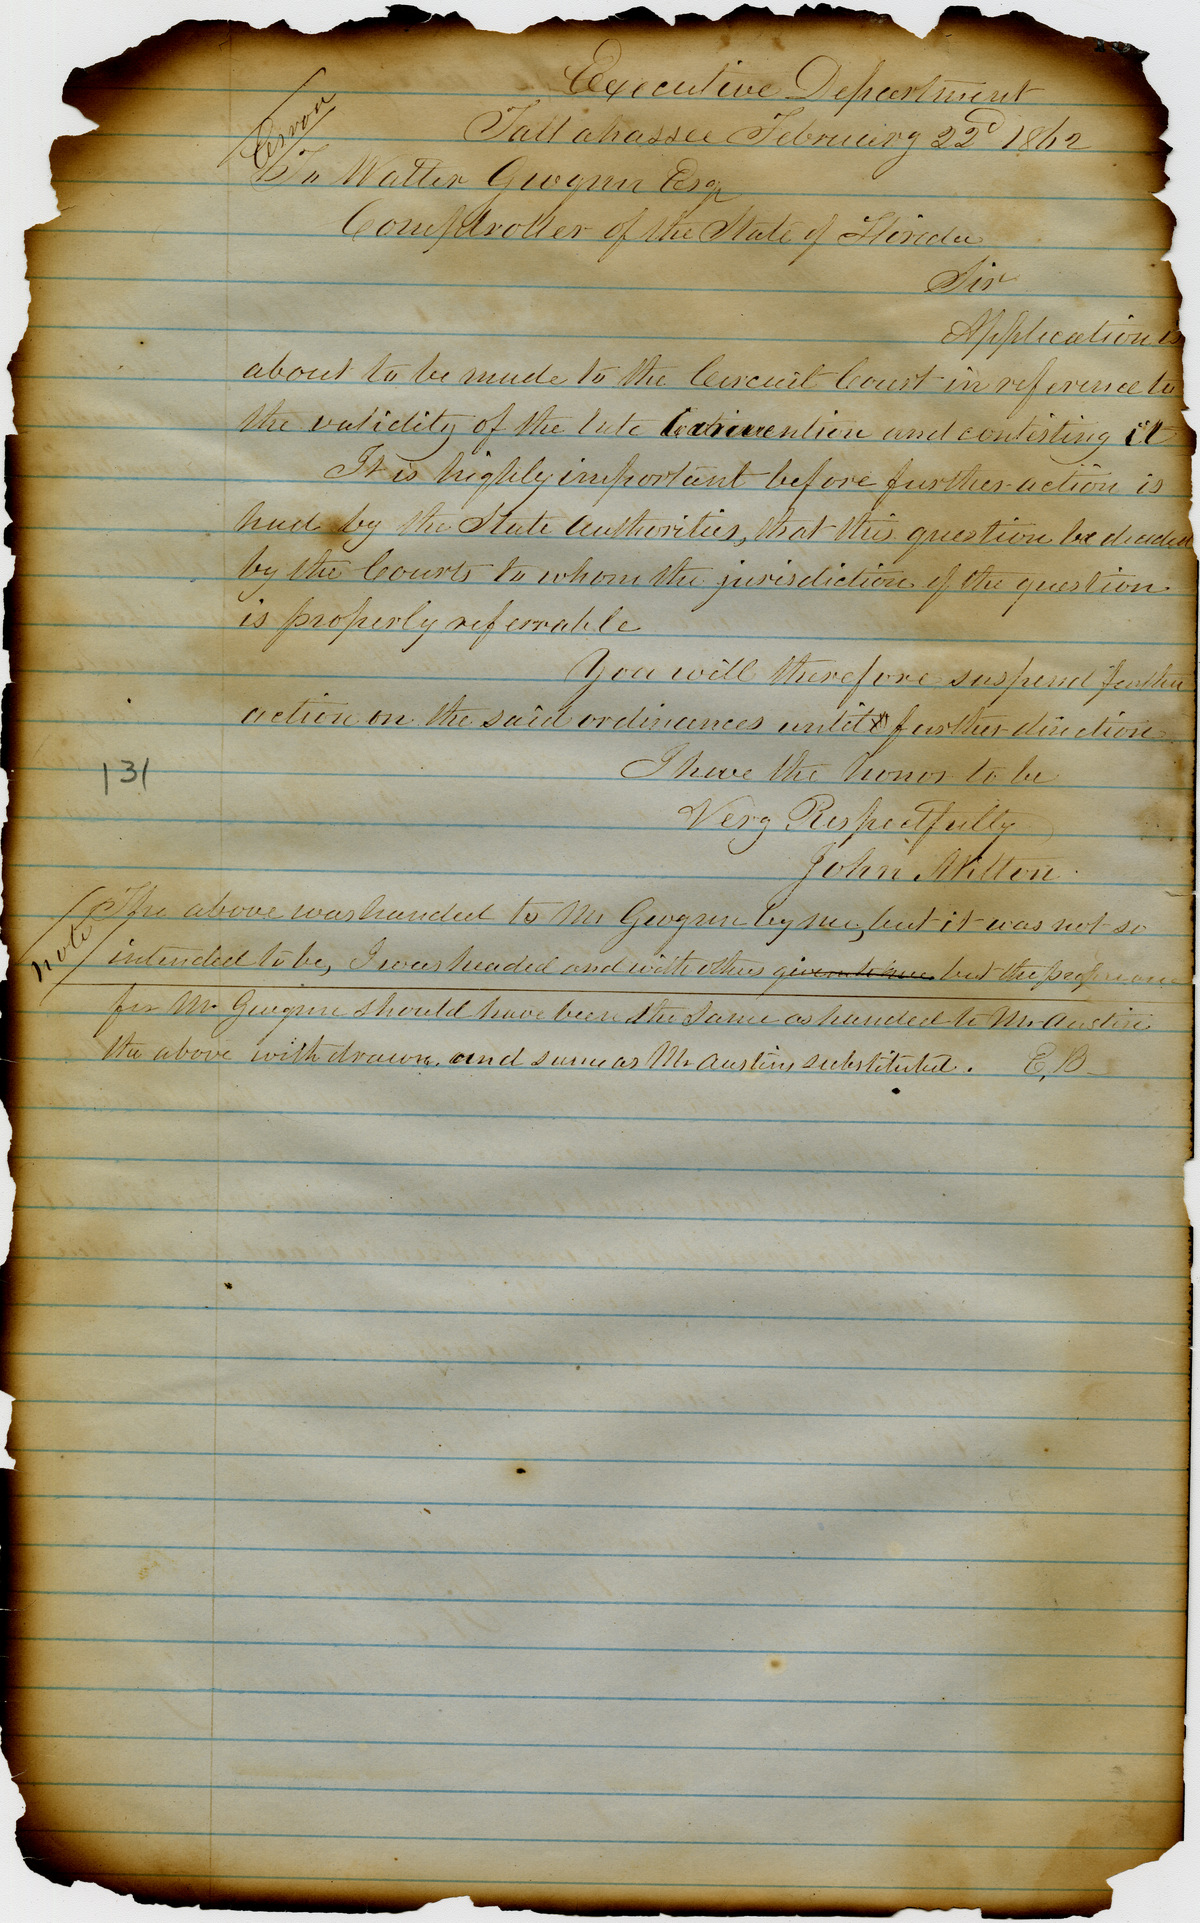 Error
Executive Department
Tallahassee February 22d 1862
To Walter Gwynn Esq
Comptroller of the State of Florida
Sir
Application is
about to be made to the Circuit Court in reference to
the validity of the late Convention and contesting it
It is highly important before further action is
had by the State authorities, that this question be decided
by the Courts to whom the jurisdiction of the question
is properly referrable
You will therefore suspend further
action on the said ordinances until further direction
I have the honor to be
Very Respectfully
John Milton
131
note
The above was handed to Mr Gwynn by me, but it was not so
intended to be, I was headed and with others given to me but the proper one
for Mr Gwynn should have been the same as handed to Mr Austin
the above withdrawn and same as Mr Austins substituted. E, B